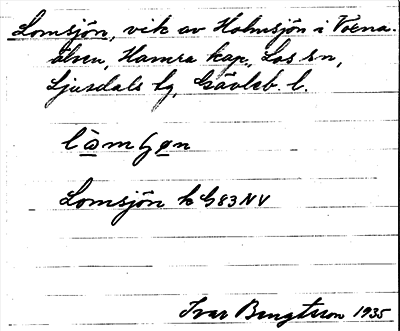 Lomsjön, vik av Holmsjön i Voxna-
älven, Hamra kap., Los sn,
Ljusdals tg, Gävleb. l.
Lomsjön k G83NV
Ivar Bengtsson 1935